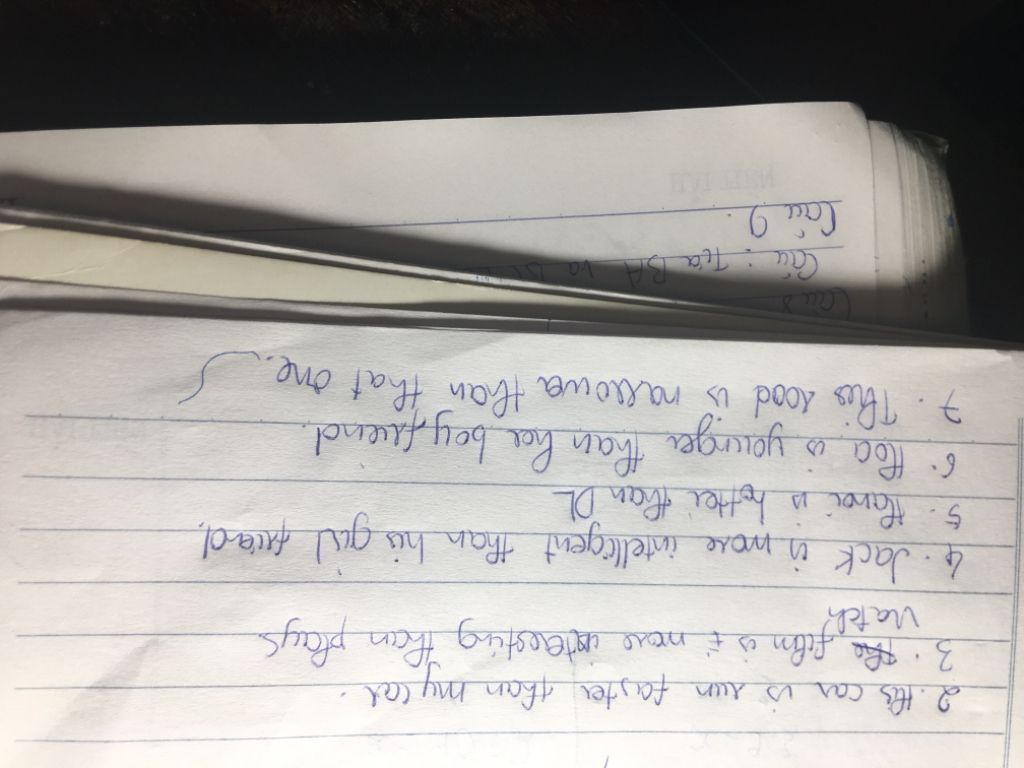 2. His car is run faster than my car.
3. the film is more interesting than plays
Watch
4. Jack is more intelligent than his girl friend.
5. Hanoi is hotter than DL
6. Hoa is younger than her boy friend.
7. This road is narrower than that one.
Câu :
Câu 9.